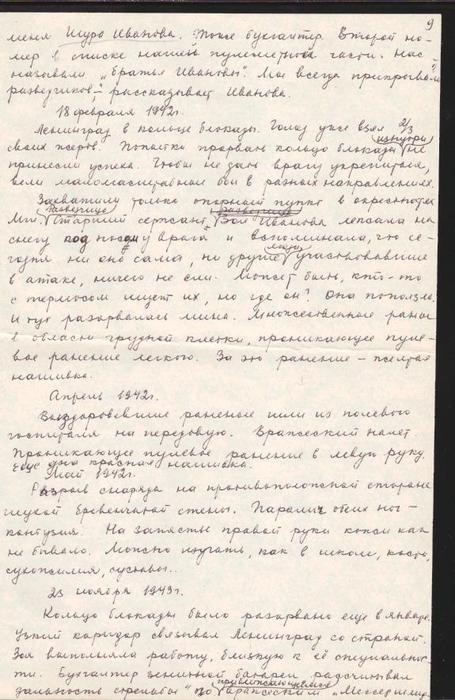 9
меня Шура Иванова. Тоже бухгалтер. Второй но-
мер в списке нашей пулеметной части. Нас
называли „братья Ивановы". Мы всегда прикрывали
разведчиков", - рассказывает Иванова.
18 февраля 1942г.
Ленинград в кольце блокады. Голод уже взял 2/3
своих жертв. Попытки прорвать кольцо блокады изнутри не
принесли успеха. Чтобы не дать врагу укрепиться,
вели маломасштабные бои в разных направлениях.
Захватили только опорный пункт в окрестностях
Мги. Старший сержант Зоя Иванова лежала на
снегу под носом у врага и вспоминала, что се-
годня ни она сама, ни другие, участвовавшие
в атаке, ничего не ели. Может быть, кто-то
с термосом ищет их, но где он? Она поползла,
и тут разорвалась мина. Множественные раны
в области грудной клетки, проникающее пуле-
вое ранение легкого. За это ранение - желтая
нашивка.
Апрель 1942г.
Выздоровевшие раненые шли из полевого
госпиталя на передовую. Вражеский налет.
Проникающее пулевое ранение в левую руку.
Еще одна красная нашивка.
Май 1942г.
Разрыв снаряда на противоположной стороне
глухой бревенчатой стены. Паралич обеих ног -
контузия. На запястье правой руки кожи как
не бывало. Можно изучать, как в школе, кости,
сухожилия, суставы...
23 ноября 1943г.
Кольцо блокады было разорвано еще в январе.
Узкий коридор связывал Ленинград со страной.
Зоя выполняла работу, близкую к её специальнос-
ти. Бухгалтер зенитной батареи рассчитывал
дальность стрельбы по приближающемуся вражескому